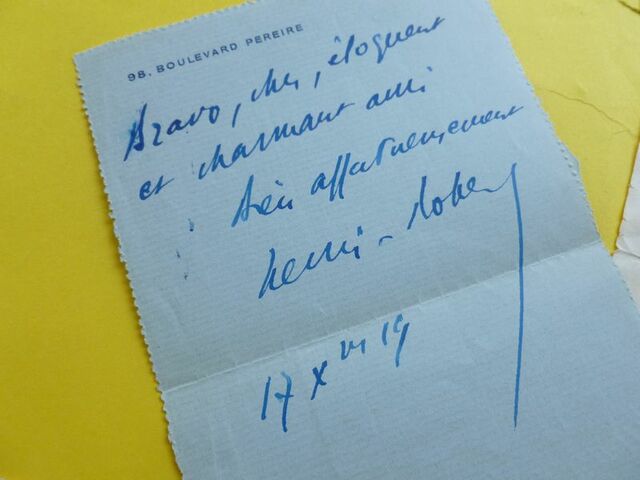 98, BOULEVARD PEREIRE
Bravo, cher, éloquent
et charmant ami
bien affectueusement
henri-robert
17 Xbre 19